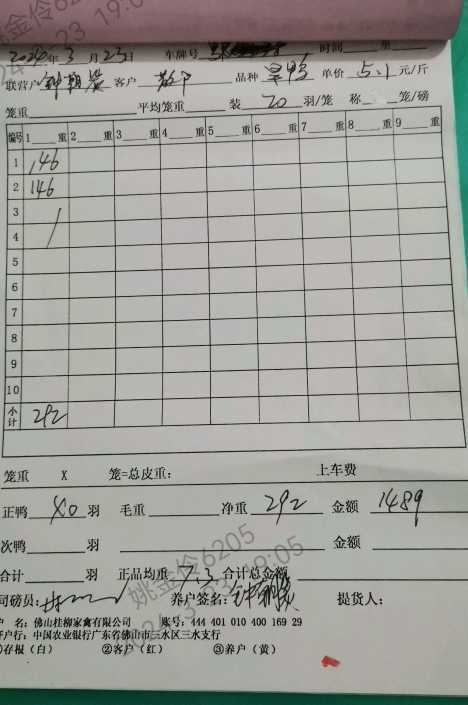 2024年3月23日 车牌号 时间 重
联营户 客户 散户 品种 单价 5.1 元/斤
笼重 平均笼重 装 20 羽/笼 称 笼/磅
编号 1 重 2 重 3 重 4 重 5 重 6 重 7 重 8 重 9 重
1 146
2 146
3
4
5
6
7
8
9
10
小计 292
笼重 X 笼=总皮重: 上车费
正鸭 40 羽 毛重 净重 292 金额 1489
次鸭 羽 金额
合计 羽 正品均重 7.3 合计总金额
司磅员: 养户签名: 提货人:
户 名: 佛山桂柳家禽有限公司 账号: 444 401 010 400 169 29
开户行: 中国农业银行广东省佛山市三水区三水支行
①存根(白) ②客户(红) ③养户(黄)
姚金伶6205
2024-3-23 19:05